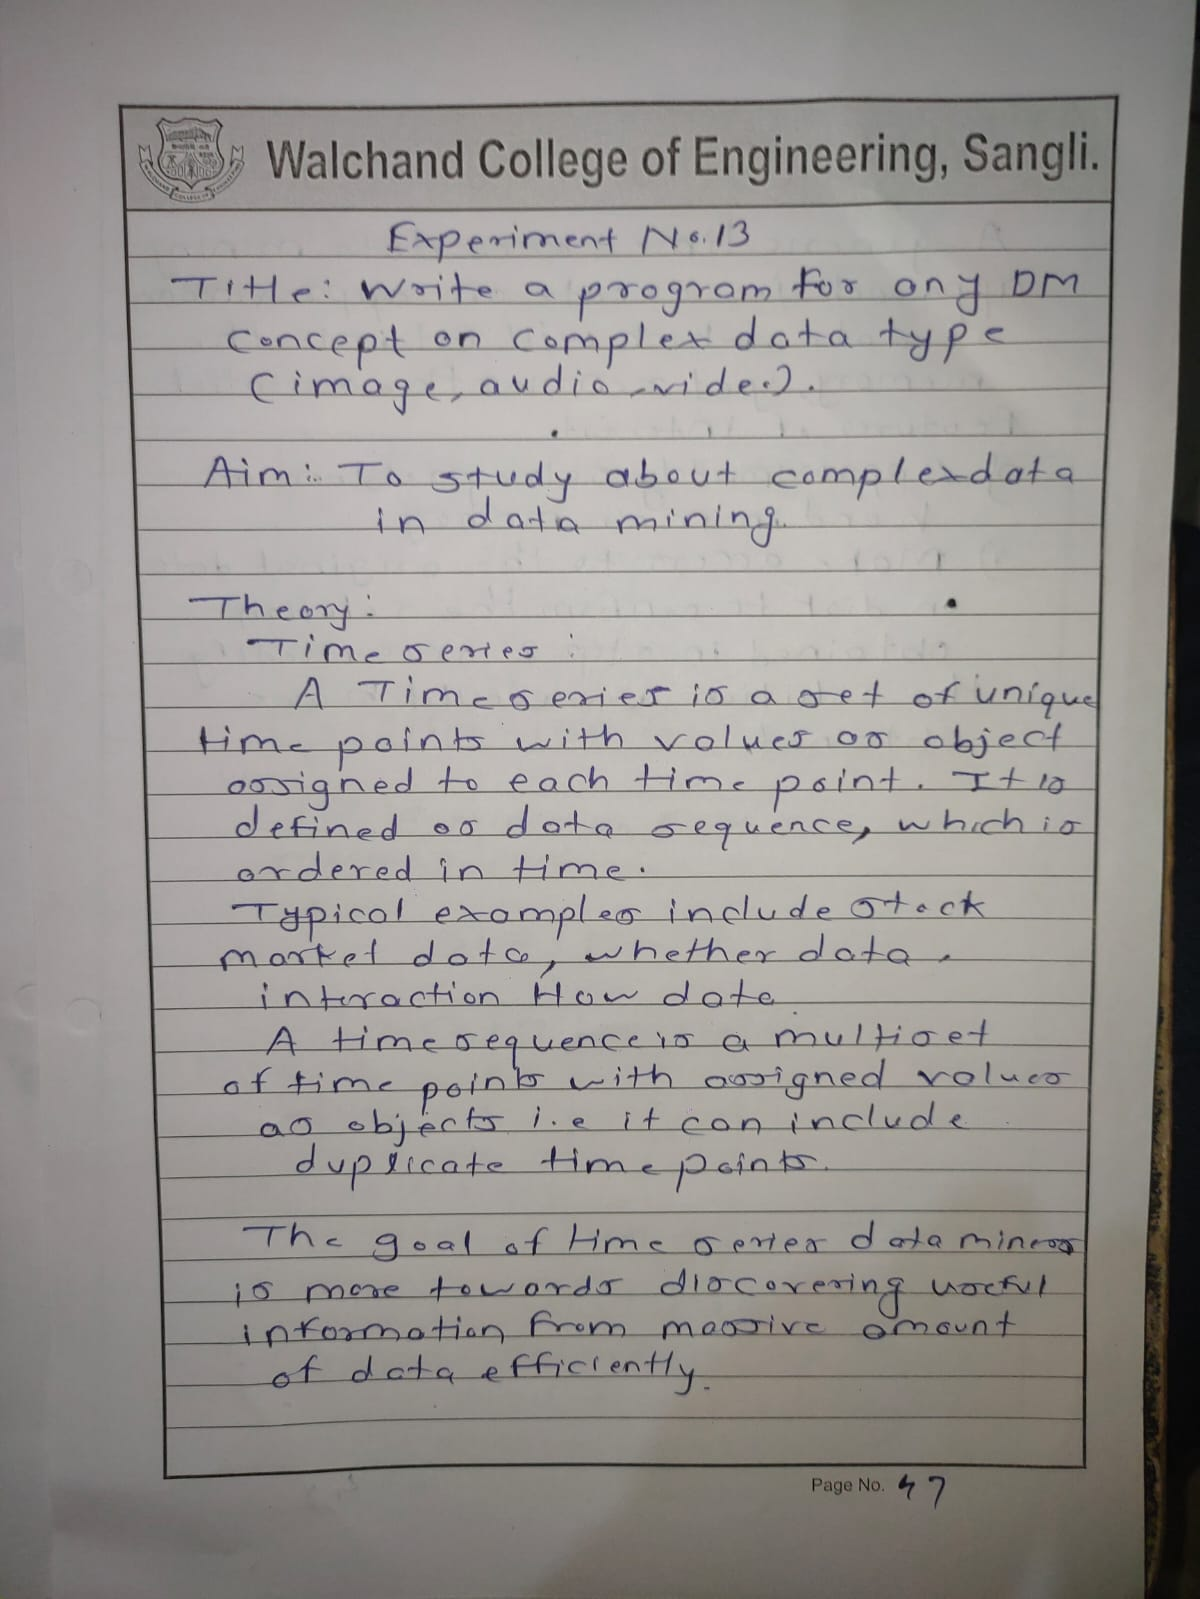 Walchand College of Engineering, Sangli.
Experiment No. 13
Title: Write a program for any DM
concept on complex data type
(image, audio, video).
Aim: To study about complex data
in data mining.
Theory:
Time series :
A Time series is a set of unique
time points with values or object
assigned to each time point. It is
defined as data sequence, which is
ordered in time.
Typical examples include stock
market data, whether data,
interaction How data
A time sequence is a multiset
of time points with assigned values
as objects i.e it can include
duplicate time points.
The goal of time series data
is more towards discovering useful
information from massive amount
of data efficiently.
Page No. 47